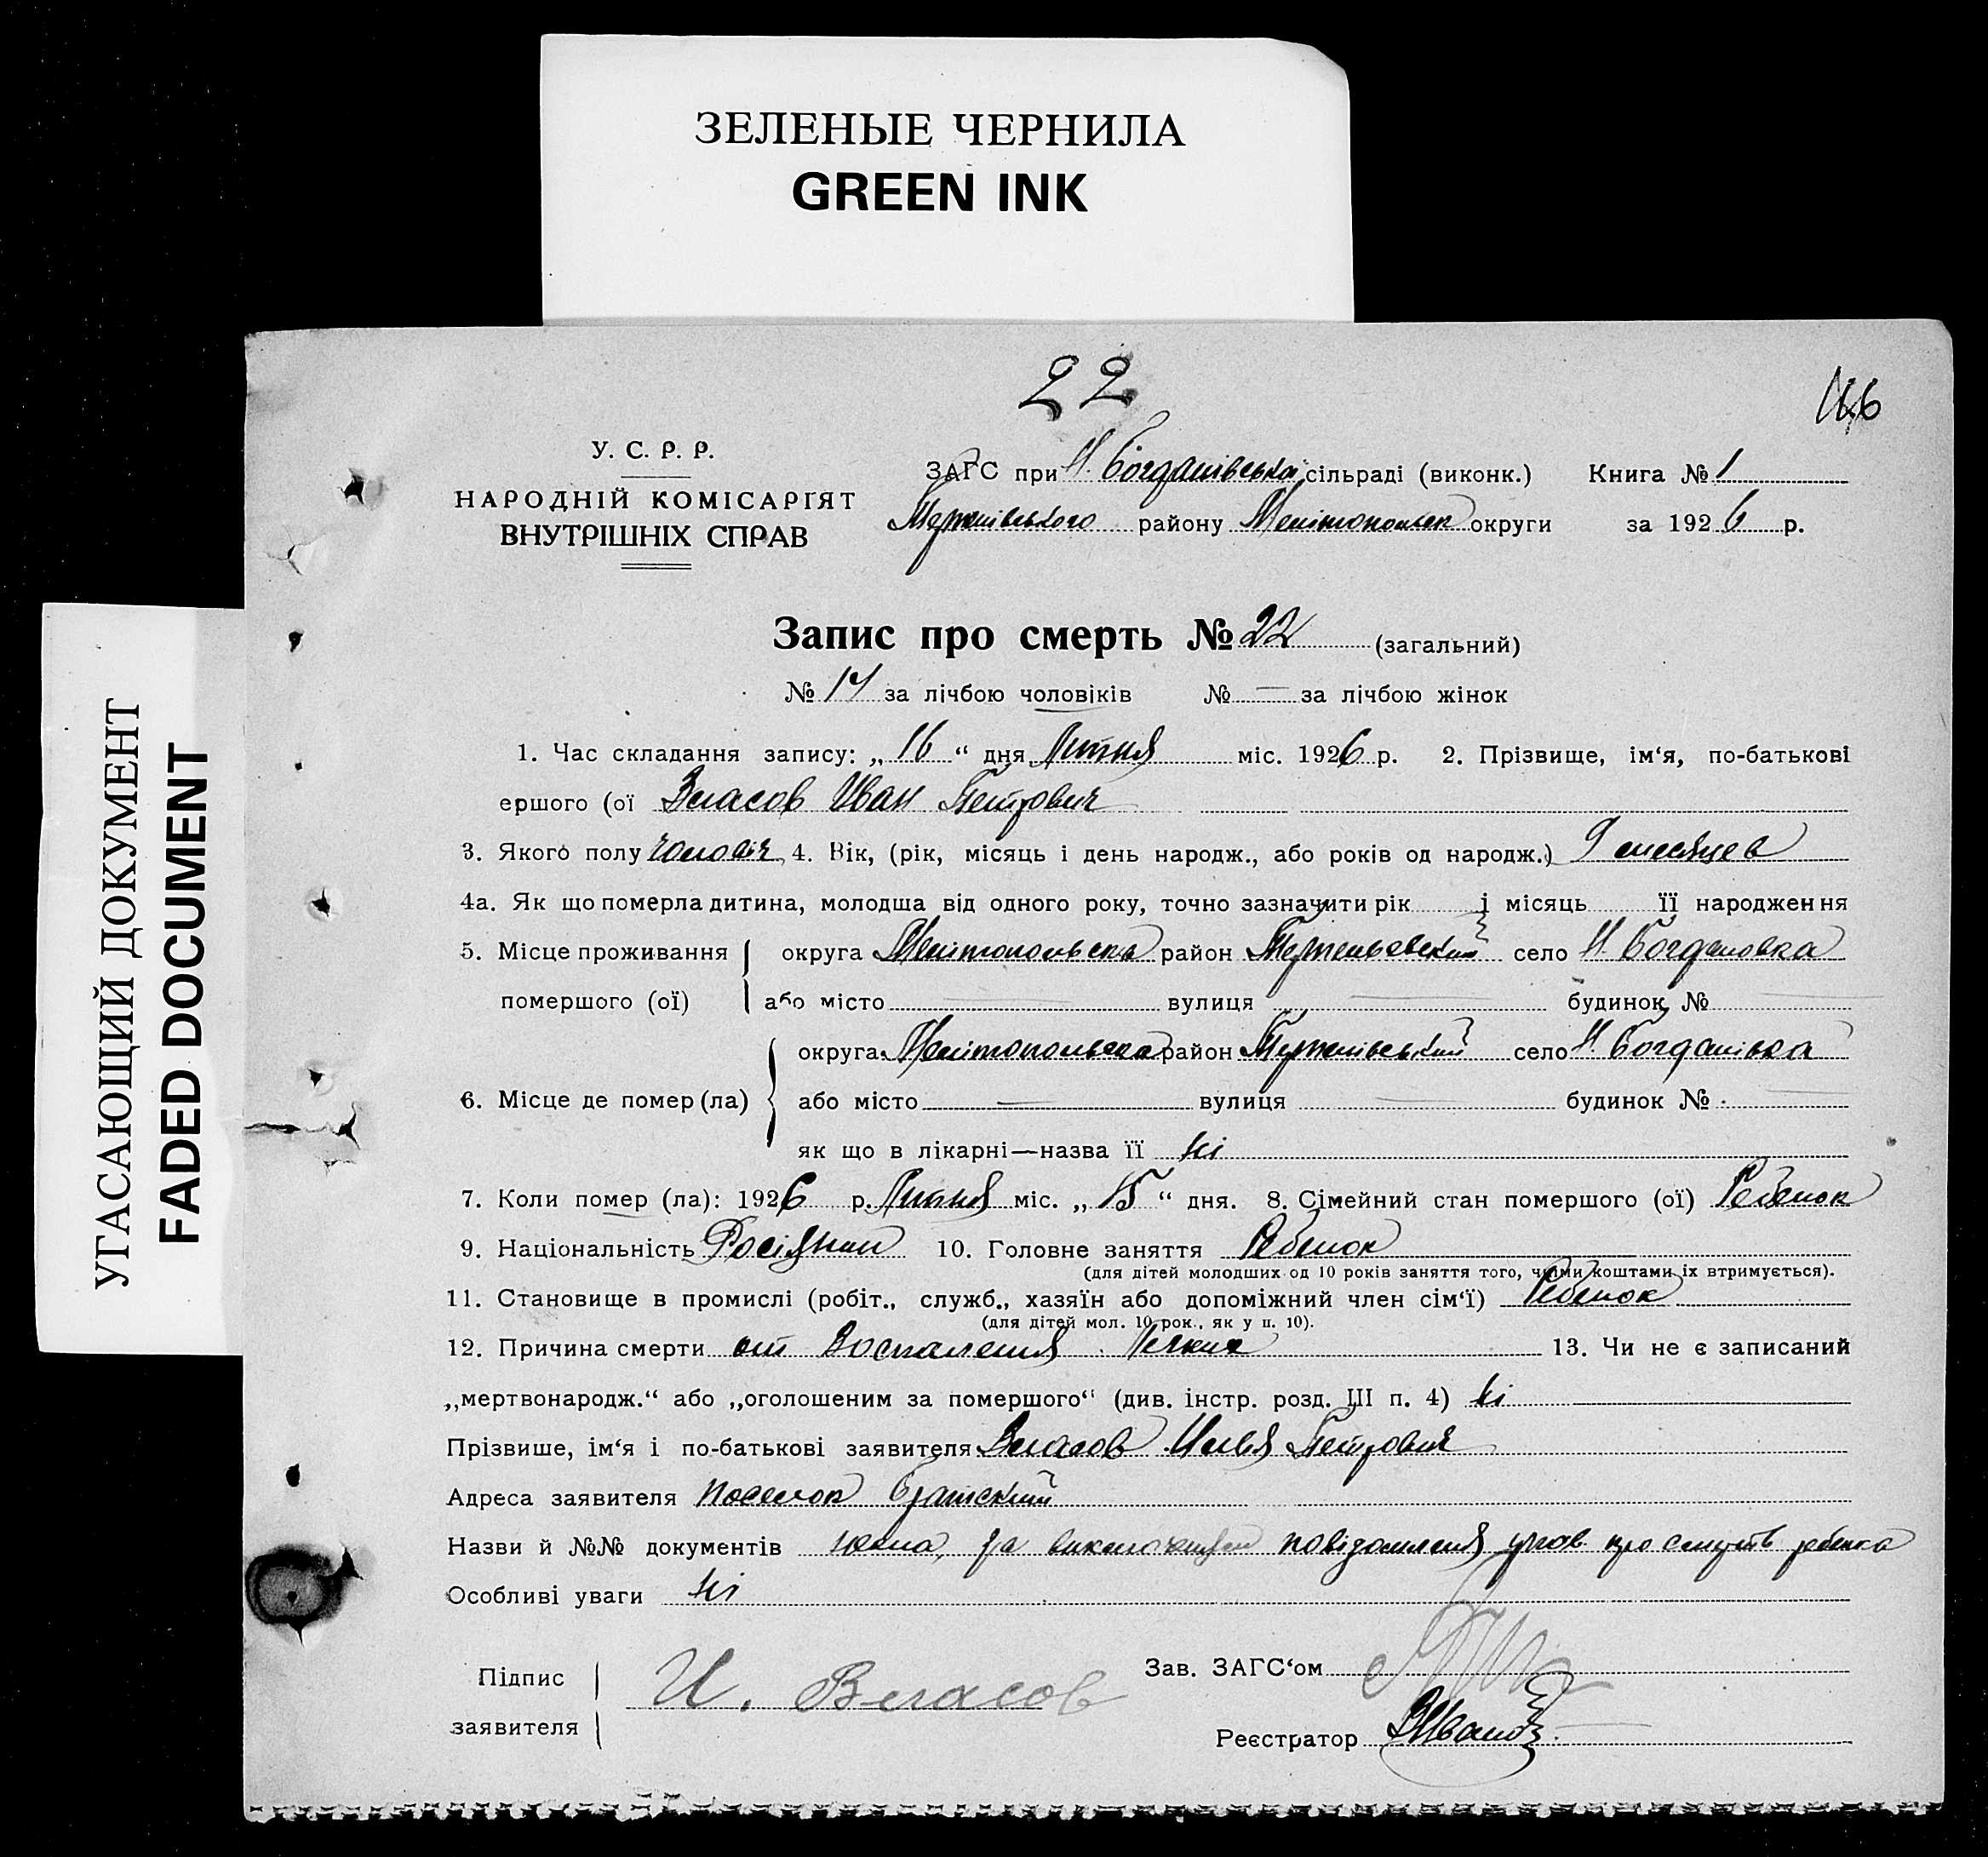 ЗЕЛЕНЫЕ ЧЕРНИЛА
GREEN INK
УГАСАЮЩИЙ ДОКУМЕНТ
FADED DOCUMENT
22
У. С. Р. Р.
НАРОДНІЙ КОМІСАРІЯТ
ВНУТРІШНІХ СПРАВ
ЗАГС при Н. Богданівська сільраді (виконк.) Книга № 1
району Мелітопольск округи за 1926 р.
Запис про смерть № 22 (загальний)
№ 14 за лічбою чоловіків № — за лічбою жінок
1. Час складання запису: „16“ дня Липня міс. 1926 р. 2. Прізвище, ім‘я, по-батькові
ершого (ої Власов Иван Петрович
3. Якого полу чоловіч. 4. Вік, (рік, місяць і день народж., або років од народж.) 9 месяцев
4а. Як що померла дитина, молодша від одного року, точно зазначити рік і місяць її народження
5. Місце проживання округа Мелітопольска район село Н. Богдановка
помершого (ої) або місто — вулиця — будинок № —
округа Мелітопольска район село Н. Богданівка
6. Місце де помер (ла) або місто — вулиця — будинок № —
як що в лікарні—назва її ні
7. Коли помер (ла): 1926 р. Липня міс. „15“ дня. 8. Сімейний стан помершого (ої) Ребенок
9. Національність Росіянин 10. Головне заняття Ребенок
(для дітей молодших од 10 років заняття того, чиїми коштами їх втримується).
11. Становище в промислі (робіт., служб., хазяїн або допоміжний член сім‘ї) Ребенок
(для дітей мол. 10 рок., як у п. 10).
12. Причина смерти от Воспаления Легких 13. Чи не є записаний
„мертвонародж.“ або „оголошеним за помершого“ (див. інстр. розд. III п. 4) ні
Прізвише, ім‘я і по-батькові заявителя Власов Илья Петрович
Адреса заявителя Поселок Братский
Назви й №№ документів повідомления про смерть ребенка
Особливі уваги ні
Підпис
заявителя
И. Власов
Зав. ЗАГС‘ом
Реєстратор